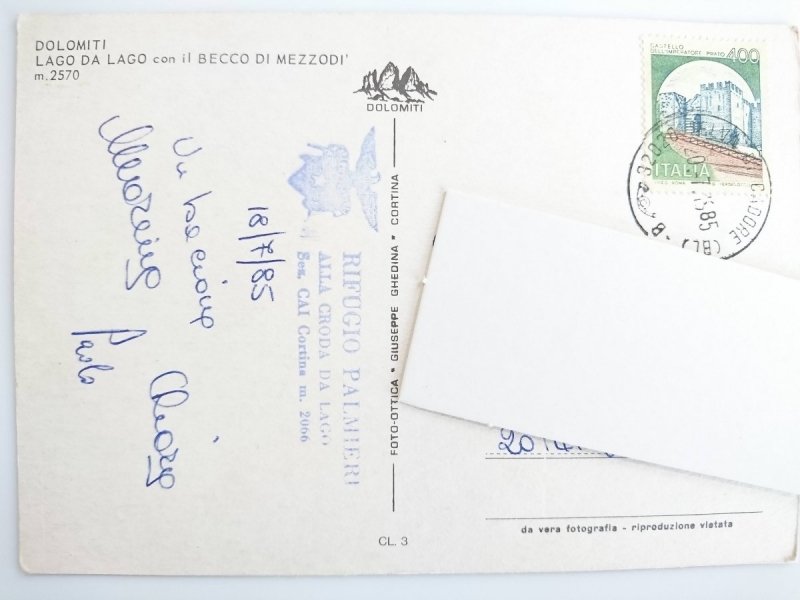 DOLOMITI
LAGO DA LAGO con il BECCO DI MEZZODI'
m. 2570
DOLOMITI
CASTELLO
DELL'IMPERATORE PRATO 400
ITALIA
32020
CADORE (BL)
18/7/85
Un bacione
Chiara
Paolo
RIFUGIO PALMIERI
ALLA CRODA DA LAGO
Sez. CAI Cortina m. 2066
FOTO-OTTICA * GIUSEPPE GHEDINA * CORTINA
da vera fotografia - riproduzione vietata
CL. 3